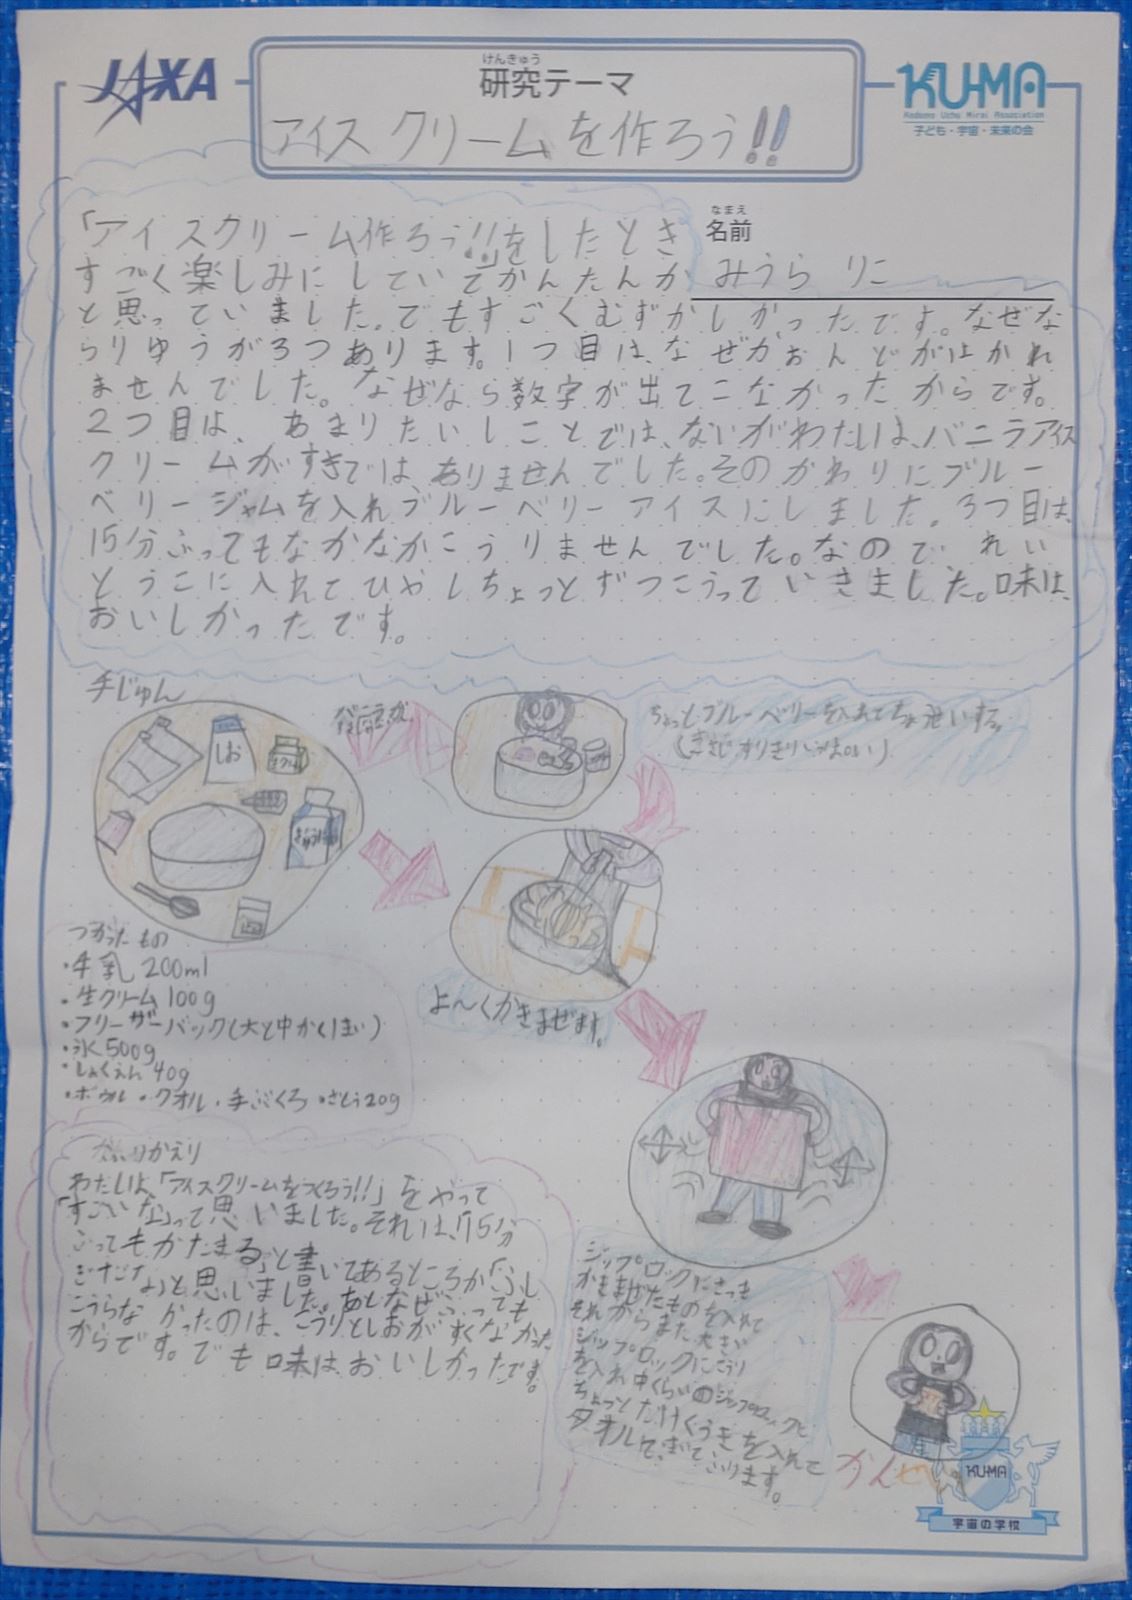 JAXA
けんきゅう
研究テーマ
アイスクリームを作ろう!!
KUMA
Kodomo Uchu Mirai Association
子ども・宇宙・未来の会
なまえ
名前
みうら りこ
「アイスクリーム作ろう!!」をしたとき
すごく楽しみにしていてかんたんか
と思っていました。でもすごくむずかしかったです。なぜな
らりゆうが3つあります。1つ目は、なぜかおんどがはかれ
ませんでした。なぜなら数字が出てこなかったからです。
2つ目は、あまりたいしことでは、ないがわたしは、バニラアイス
クリームがすきでは、ありませんでした。そのかわりにブルー
ベリージャムを入れブルーベリーアイスにしました。3つ目は、
15分ふってもなかなかこうりませんでした。なので れい
とうこに入れてひやしちょっとずつこうっていきました。味は、
おいしかったです。
手じゅん
しお
ちょっとブルーベリーを入れて
よ〜くかきまぜます。
つかったもの
・牛乳 200ml
・生クリーム 100g
・フリーザーバック(大と中かく1まい)
・氷 500g
・しょくえん 40g
・ボウル ・タオル ・手ぶくろ ・さとう20g
ふりかえり
わたしは「アイスクリームをつくろう!!」をやって
「すごいな」って思いました。それは、「15分
ふってもかたまる」と書いてあるところが「ふし
ぎだな」と思いました。あとなぜふっても
こうらなかったのは、こうりとしおがすくなかった
からです。でも味はおいしかったです。
ジップロックにさっき
かきまぜたものを入れて
それからまた大きい
ジップロックにこうり
を入れ中くらいのジップロックと
ちょっとだけくうきを入れて
タオルで、まいてふります。
かんせい
KUMA
宇宙の学校